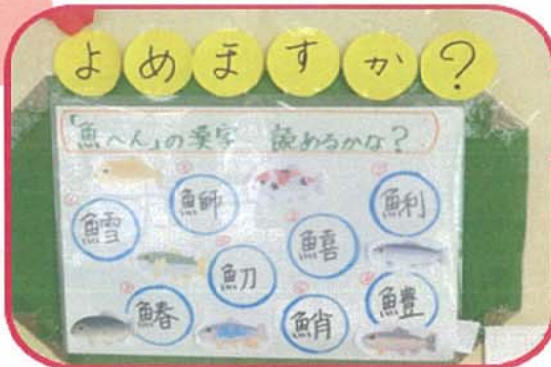 よめますか？
「魚へん」の漢字 読めるかな？
鱈 鰤 鱚 鯏
魛
鰆 鮹 鱧